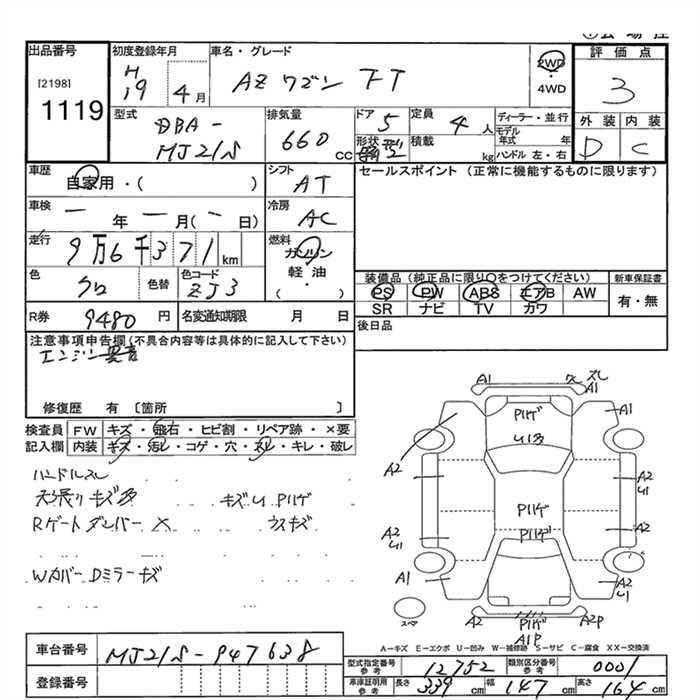 出品番号
[2198]
1119
初度登録年月
H19 4月
車名・グレード
AZ ワゴン FT
2WD
・
4WD
評価点
3
外装 内装
D C
型式
DBA-
MJ21S
排気量
660 cc
ドア 5
形状
定員 4 人
積載 kg
ディーラー・並行
モデル年式 年
ハンドル 左・右
車歴
自家用・( )
シフト
AT
セールスポイント (正常に機能するものに限ります)
車検
ー 年 ー 月 (ー 日)
冷房
AC
走行
9万6千371 km
燃料
ガソリン
軽・油
( ・ )
色
クロ
色替
色コード
ZJ3
装備品 (純正品に限り○をつけてください)
新車保証書
PS PW ABS エアB AW
SR ナビ TV カワ
有・無
R券 9480 円
名変通知期限 月 日
後日品
注意事項申告欄(不具合内容等は具体的に記入して下さい)
エンジン異音
修復歴 有 〔箇所 〕
検査員 FW キズ・飛石・ヒビ割・リペア跡・×要
記入欄 内装 キズ・汚レ・コゲ・穴・スレ・キレ・破レ
ハンドルスレ
天張りキズ多 キズU P11ゲ
Rゲートダンパー × ウスキズ
Wカバー Dミラーキズ
A1 ズレ
A1
P11ゲ
A1
U1多
A2
A2
U1
P11ゲ
A2
U1
P11ゲ
A2
A1
A2
U1
スペア
A2
P11ゲ
A2P
A1P
A-キズ E-エクボ U-凹み W-補修跡 S-サビ C-腐食 XX-交換済
車台番号
MJ21S-947638
登録番号
型式指定番号 参考 12752
類別区分番号 参考 0001
車庫証明用 参考 長さ 339 cm 幅 147 cm 高さ 164 cm